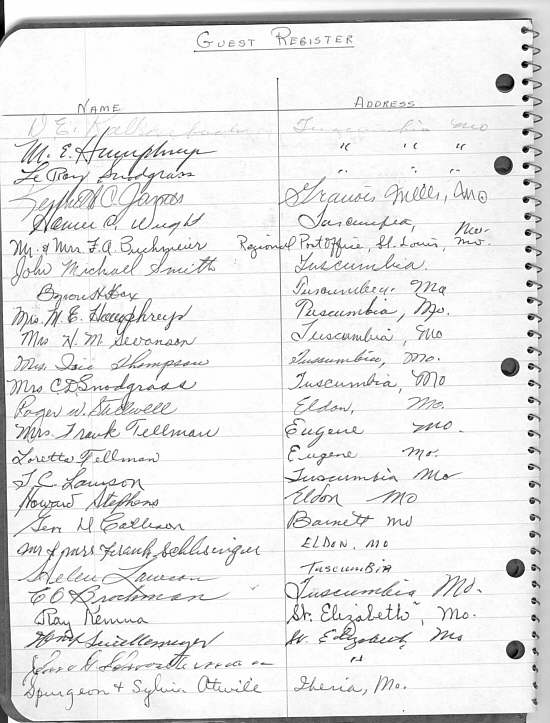 GUEST REGISTER
NAME ADDRESS
D. E. Kallenbach Tuscumbia Mo
M. E. Humphreys " " "
Le Roy Snodgrass " " "
Kenneth C. James Gravois Mills, Mo
Homer C. Wright Tuscumbia, Mo.
Mr. & Mrs. F. A. Buchmeier Regional Post Office, St. Louis, Mo.
John Michael Smith Tuscumbia.
Byron H. Tuscumbia Mo
Mrs. M. E. Humphreys Tuscumbia, Mo.
Mrs H. M. Swanson Tuscumbia, Mo
Mrs. Thompson Tuscumbia, Mo.
Mrs C. D. Snodgrass Tuscumbia, Mo
Roger W. Stilwell Eldon, Mo.
Mrs. Frank Tellman Eugene Mo.
Loretta Tellman Eugene Mo.
T. C. Lawson Tuscumbia Mo
Howard Stephens Eldon Mo
Geo. H Barnett Mo
Mr & Mrs Frank Schlesinger ELDON, MO
Helen Lawson TUSCUMBIA
E O Brockman Tuscumbia Mo.
Ray Kemna St. Elizabeth, Mo.
St Elizabeth, Mo
"
Spurgeon & Sylvia Atwill Iberia, Mo.